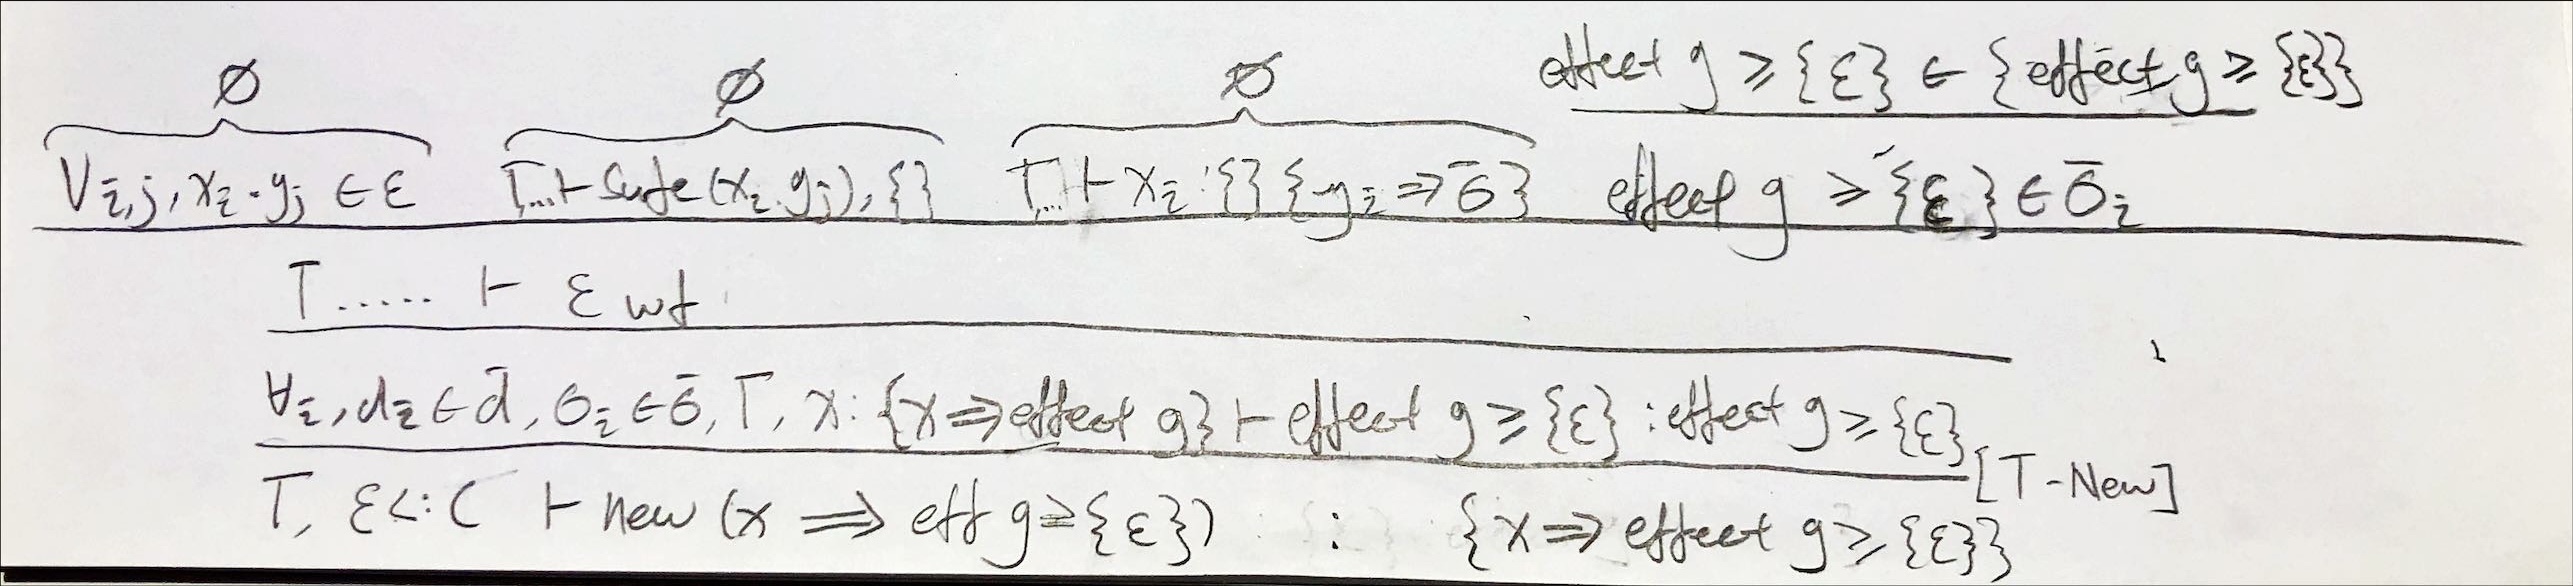 ∅ ∅ ∅ effect g ⩾ {ε} ∈ {effect g ⩾ {ε}}
∀i,j, xi.gj ∈ ε Γ...⊢ safe(xi.gj), {} Γ... ⊢ xi : {} {yi ⇒ σ̄} effect g ⩾ {ε} ∈ σ̄i
Γ...... ⊢ ε wf
∀i, di ∈ d̄, σi ∈ σ̄, Γ, x: {x ⇒ effect g} ⊢ effect g ⩾ {ε} : effect g ⩾ {ε}
[T-New]
Γ, ε <: C ⊢ new (x ⇒ eff g ⩾ {ε}) : {x ⇒ effect g ⩾ {ε}}